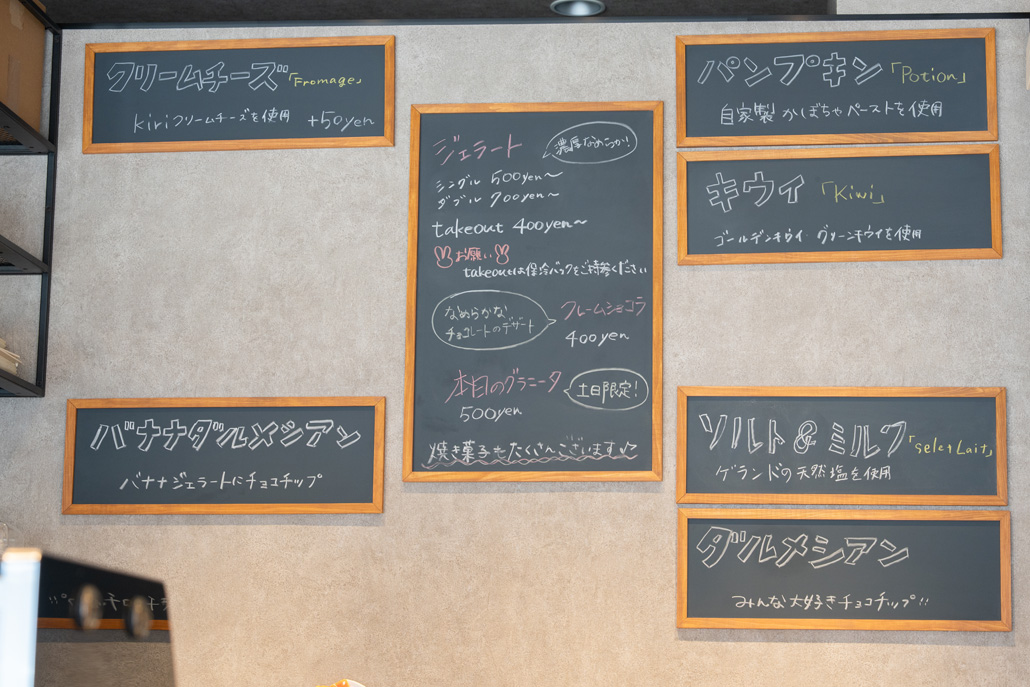 クリームチーズ「Fromage」
kiriクリームチーズを使用 +50yen
バナナダルメシアン
バナナジェラートにチョコチップ
ジェラート
濃厚なめらか!
シングル 500yen〜
ダブル 700yen〜
takeout 400yen〜
お願い
takeoutは保冷バックをご持参ください
なめらかな
チョコレートのデザート
クレームショコラ
400yen
本日のグラニータ
土日限定!
500yen
焼き菓子もたくさんございます♪
パンプキン「Potion」
自家製 かぼちゃペーストを使用
キウイ「Kiwi」
ゴールデンキウイ・グリーンキウイを使用
ソルト&ミルク「Sel et Lait」
ゲランドの天然塩を使用
ダルメシアン
みんな大好きチョコチップ!!